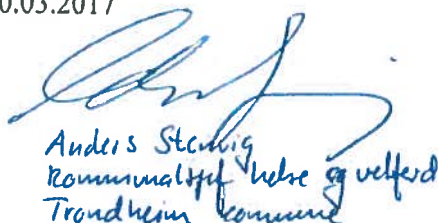 0.03.2017
Anders
Kommunalsjef helse og velferd
Trondheim kommune